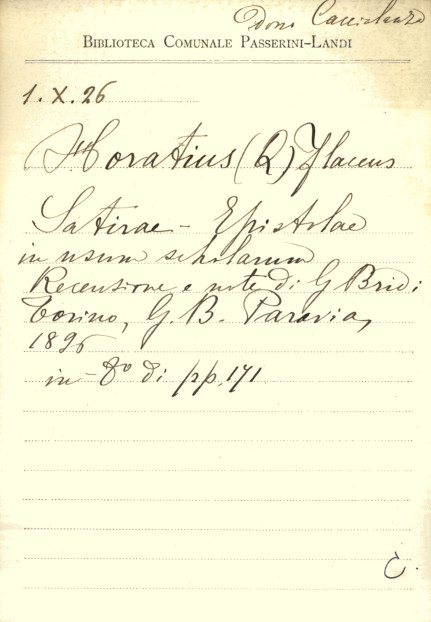 Dono
BIBLIOTECA COMUNALE PASSERINI-LANDI
1. X. 26
Horatius (Q) Flaccus
Satirae - Epistolae
in usum scholarum
Recensione e note di G Bridi
Torino, G. B. Paravia,
1896
in - 8° di pp. 171
C.